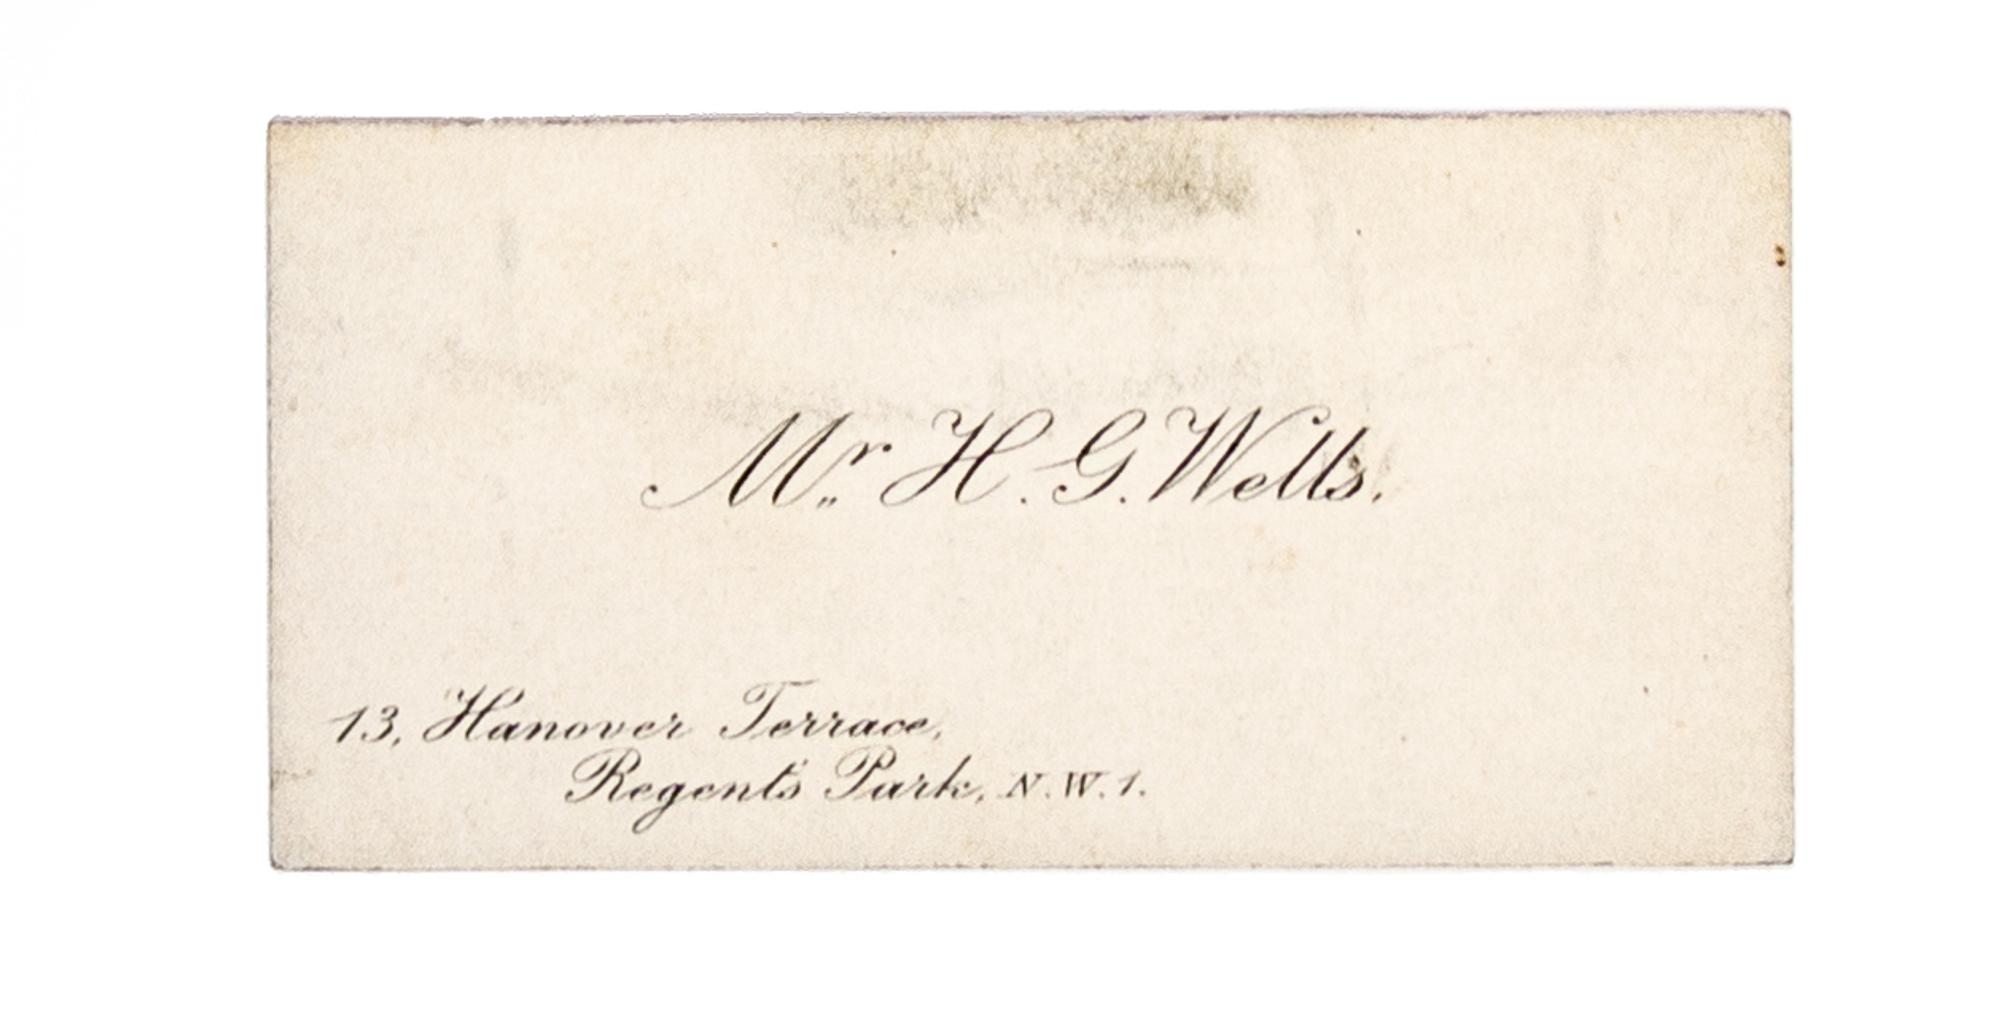 Mr. H. G. Wells.
13, Hanover Terrace,
Regent's Park, N.W.1.